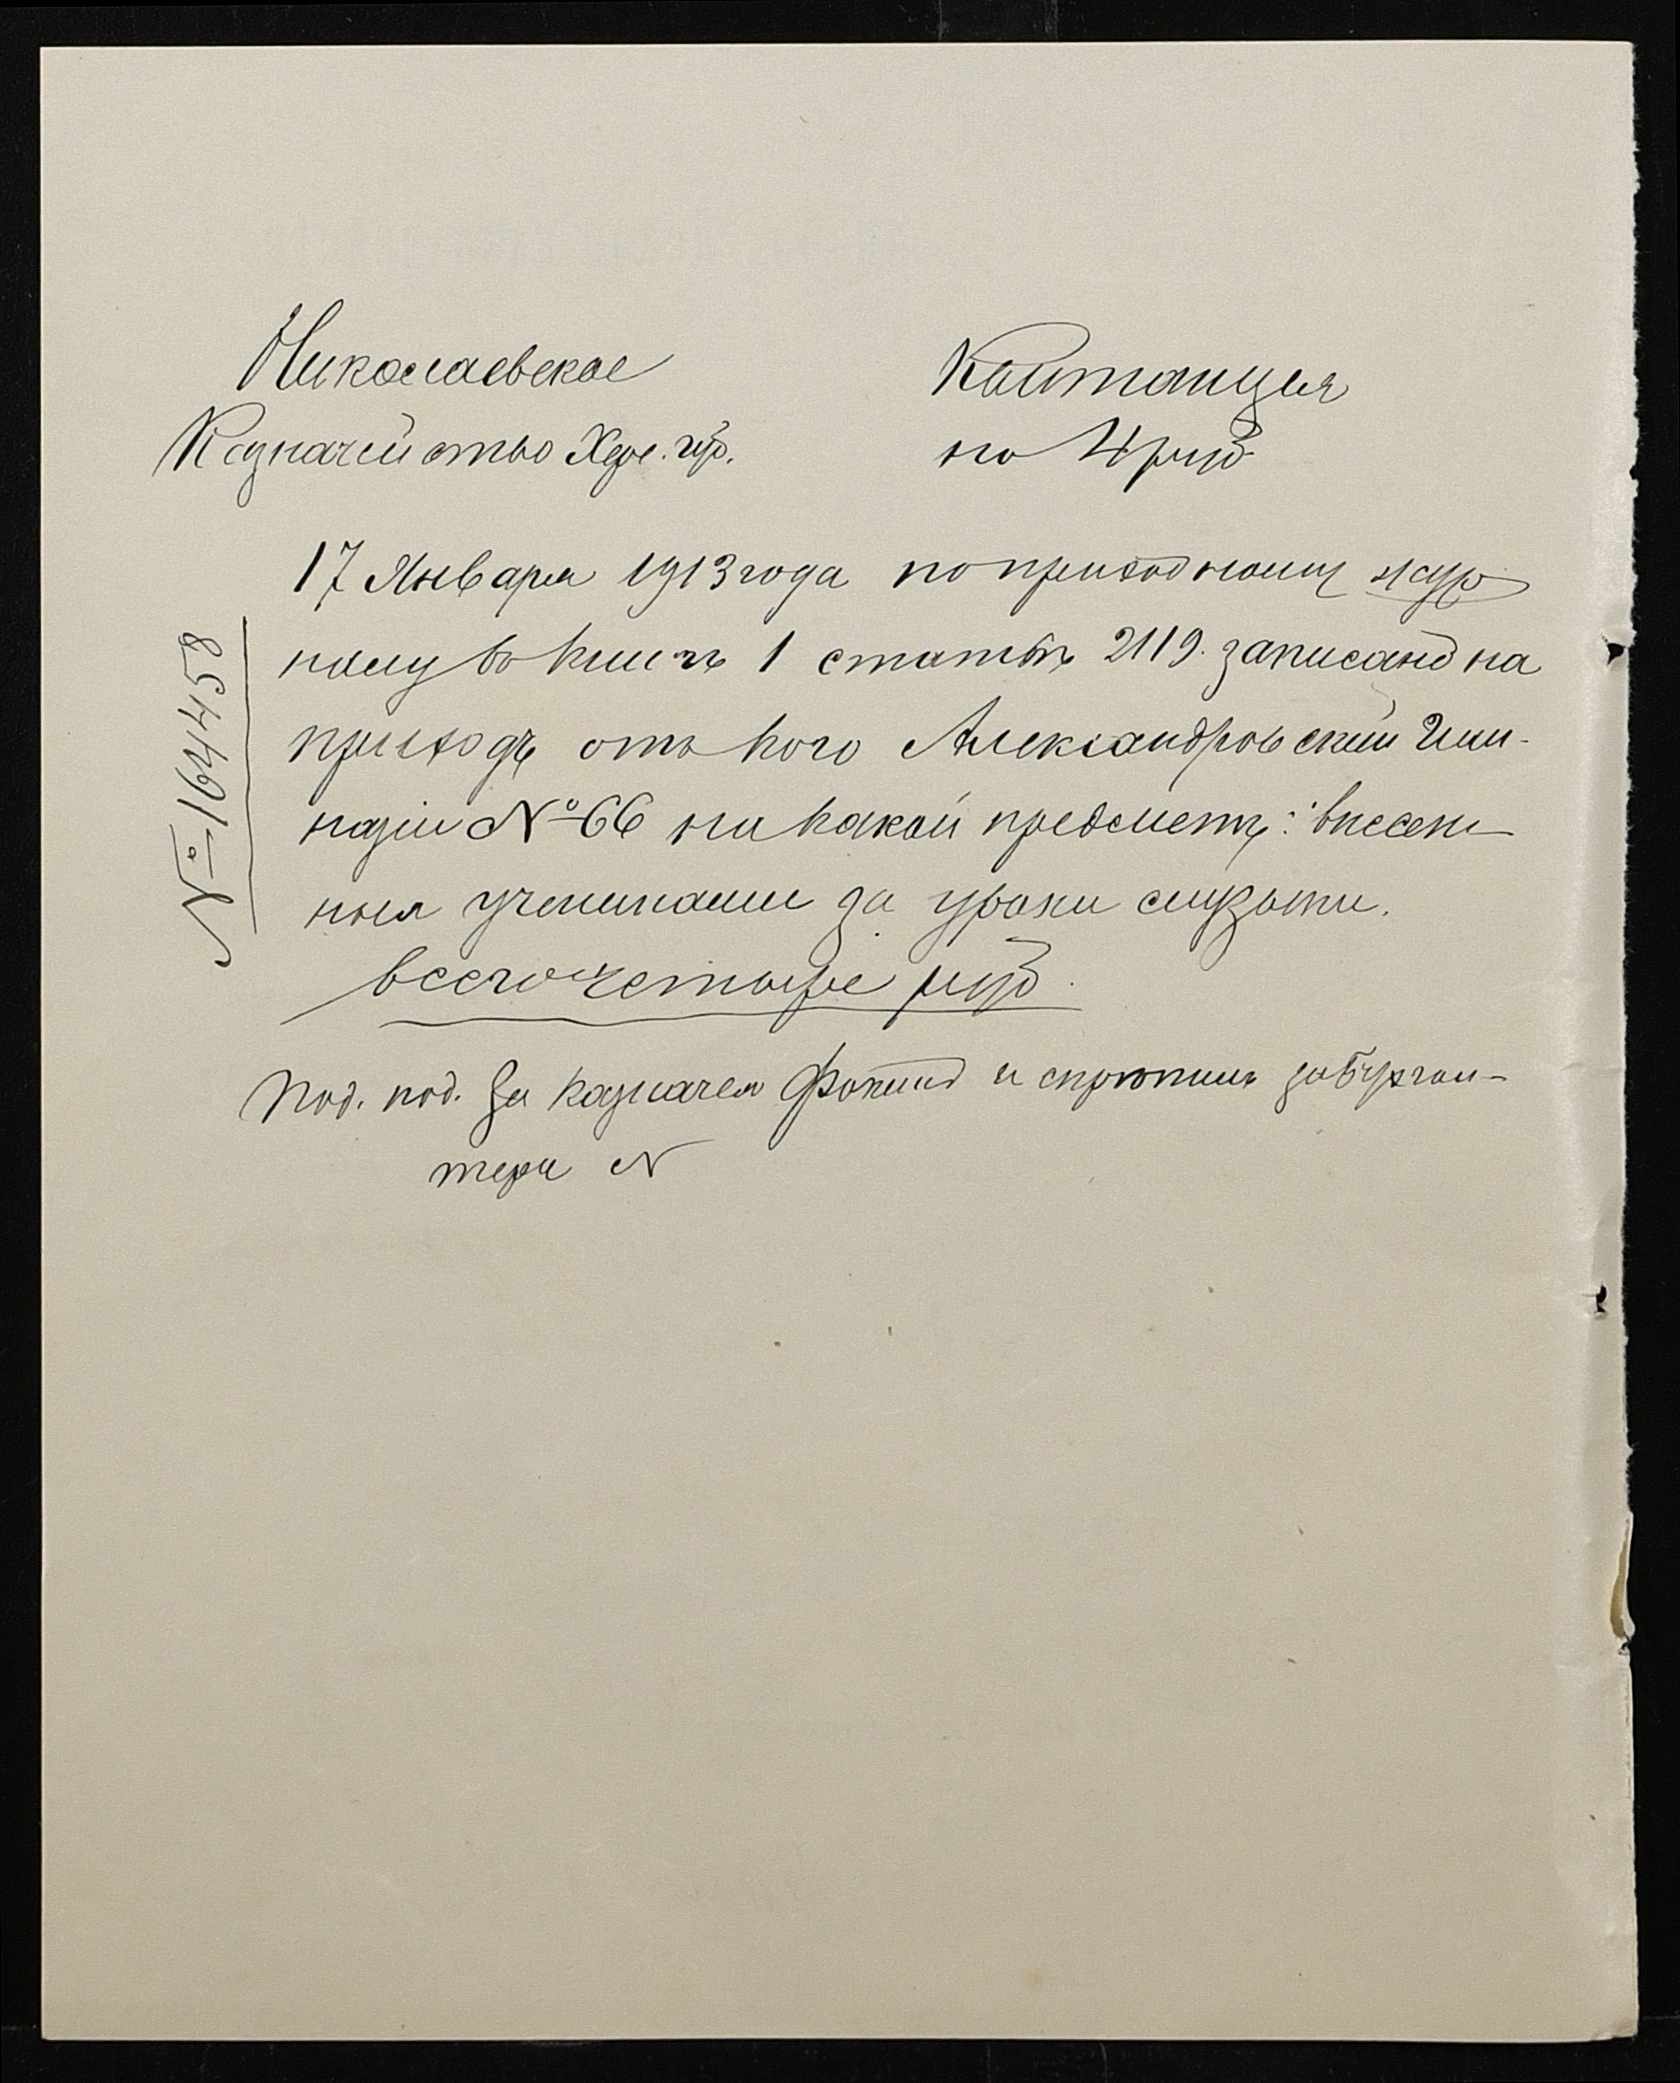 Николаевское
Казначейство Хер. губ.
Квитанция
на 4 руб
17 Января 1913 года по приходному жур
налу в книге 1 статьѣ 2119. записано на
приходъ отъ кого Александровской Гим-
назіи № 66 на какой предметъ: внесен
ныя учениками за уроки музыки.
всего четыре руб.
Под. под. За казначея Фокинъ и скрѣпилъ за бухгал-
тера N
№ 164458